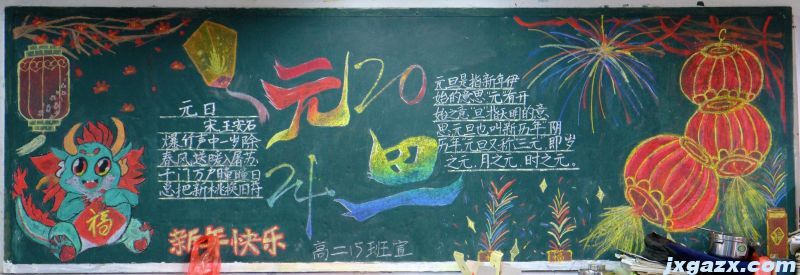 元日
宋王安石
爆竹声中一岁除
春风送暖入屠苏
千门万户曈曈日
总把新桃换旧符
新年快乐
福
元旦
2024
元旦是指新年伊
始的意思,元者开
始之意,旦
思元旦也叫新历年阴
历年元旦又称三元即岁
之元,月之元,时之元。
高二15班宣
jxgazx.com